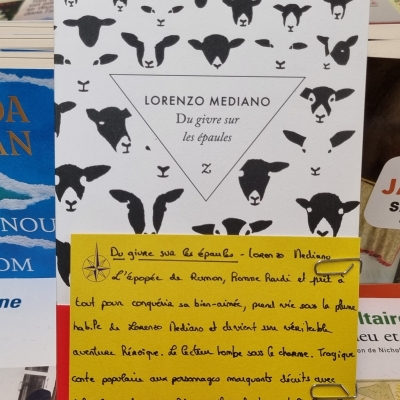 LORENZO MEDIANO
Du givre sur
les épaules
Z
Du givre sur les épaules - Lorenzo Mediano
L'épopée de Ramon, homme hardi et prêt à
tout pour conquérir sa bien-aimée, prend vie sous la plume
habile de Lorenzo Mediano et devient une véritable
aventure héroïque. Le lecteur tombe sous le charme. Tragique
conte populaire aux personnages marquants décrits avec
DA
AN
NOU
OM
ne
JA
S
ltaire
eu et
on de Nichol